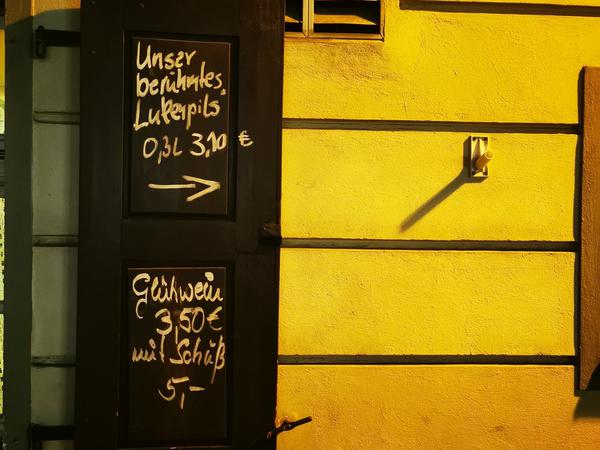 Unser
berühmtes
Lukenpils
0,3L 3,10 €
Glühwein
3,50€
mit Schuß
5,-